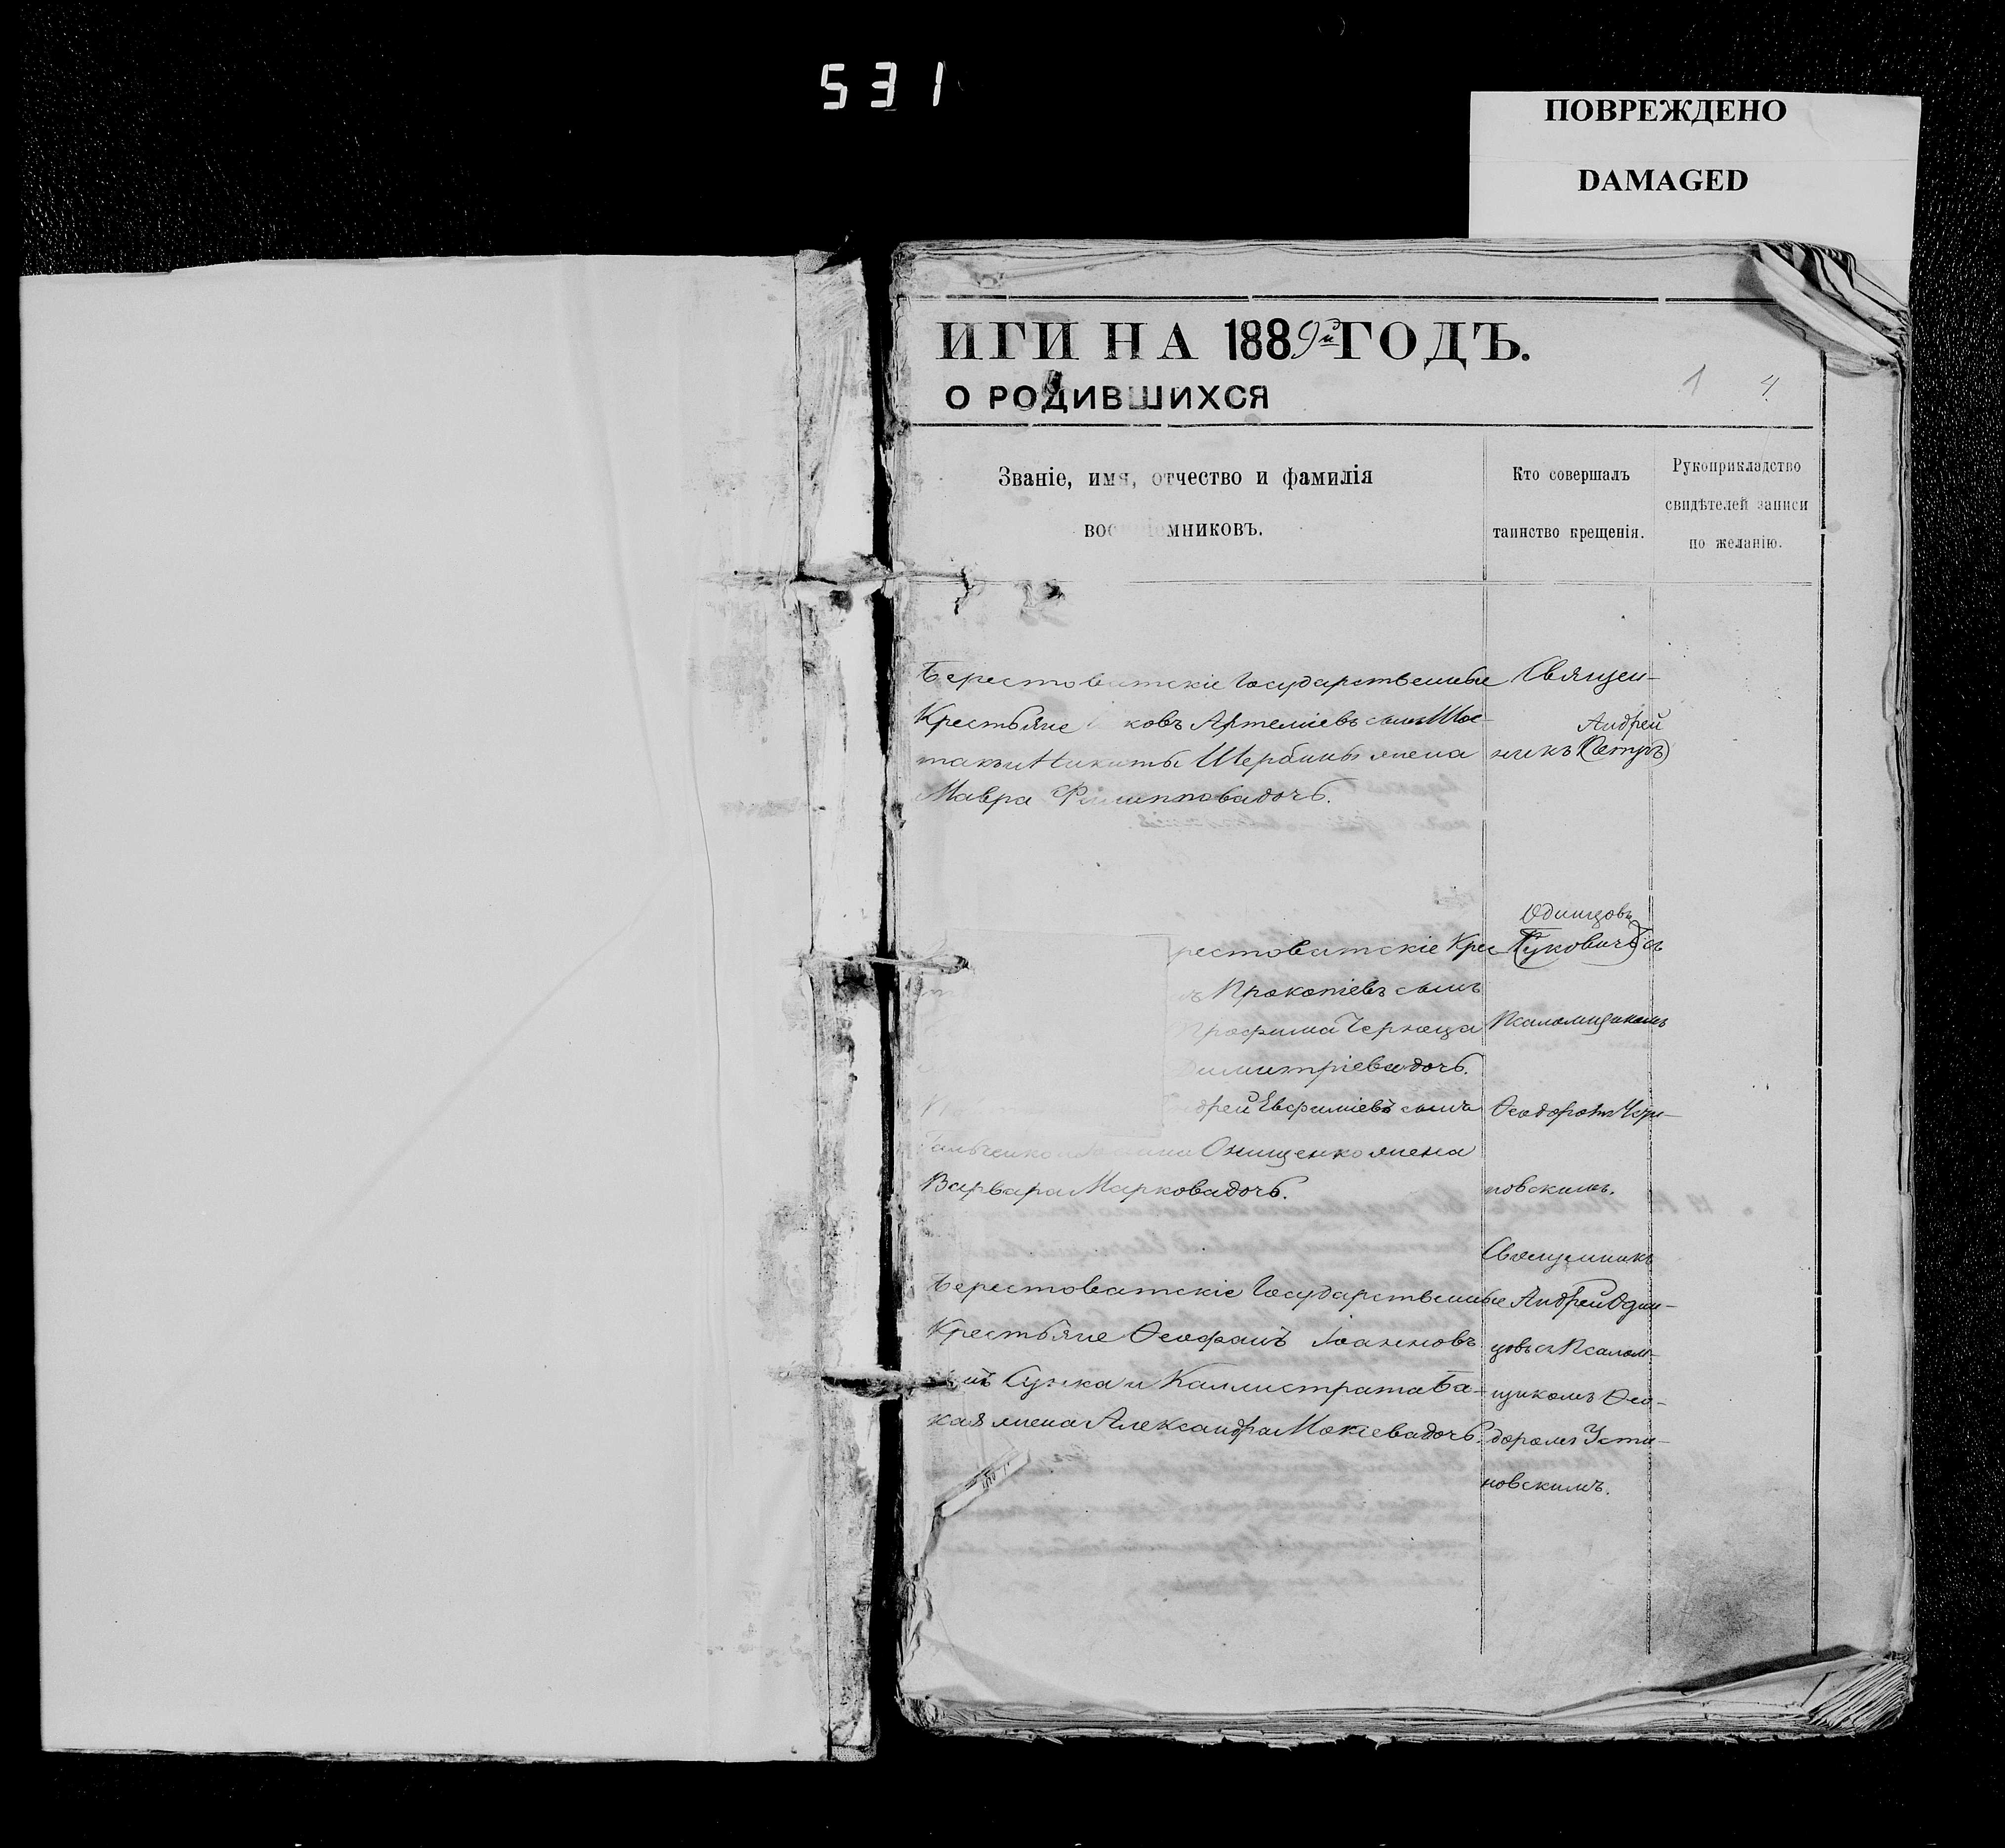 531
ПОВРЕЖДЕНО
DAMAGED
ИГИ НА 1889й ГОДЪ.
О РОДИВШИХСЯ
1 4
Званіе, имя, отчество и фамилія
воспріемниковъ.
Кто совершалъ
таинство крещенія.
Рукоприкладство
свидѣтелей записи
по желанію.
Берестоватскіе Государственные
Крестьяне ковъ Артеміевъ сынъ Шос-
такъ и Никиты Щербины жена
Мавра Филиппова дочь.
Священ-
Андрей
никъ (Петръ)
рестоватскіе Крес
Прокопіевъ сынъ
Трофима Чернеца
Димитріева дочь.
дрей Евфиміевъ сынъ
Онищенко жена
Варвара Маркова дочь.
Одинцовъ
(Гуковичъ) съ
Псаломщикомъ
Ѳеодоромъ Усти-
новскимъ.
Берестоватскіе Государственные
Крестьяне Ѳеофанъ Іоанновъ
нъ Сушка и Каллистрата Ба-
кая жена Александра Мокіева дочь.
Священникъ
Андрей Один-
цовъ съ Псалом-
щикомъ Ѳео-
доромъ Усти-
новскимъ.